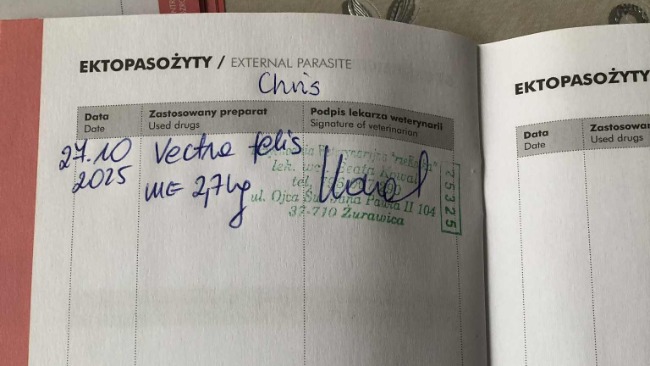 EKTOPASOŻYTY / EXTERNAL PARASITE
Chris
Data
Date
Zastosowany preparat
Used drugs
Podpis lekarza weterynarii
Signature of veterinarian
27.10
2025
Vectra felis
2,7 kg
lek. wet. Beata
tel.
ul. Ojca Św. Jana Pawła II 104
37-710 Żurawica
25325
EKTOPASOŻYTY
Data
Date
Zastosowa
Used drugs